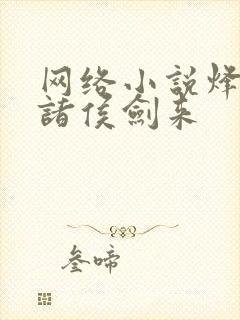 网络小说烽
諸侯劍来
叁啼